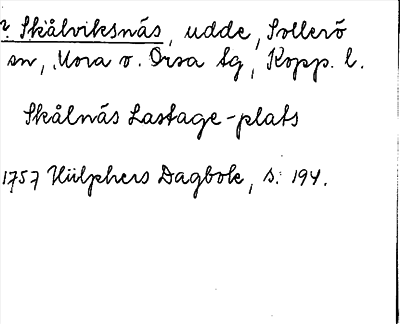 ? Skålviksnäs, udde, Sollerö
sn, Mora o. Orsa tg, Kopp. l.
Skålnäs Lastage-plats
1757 Hülphers Dagbok, s. 194.